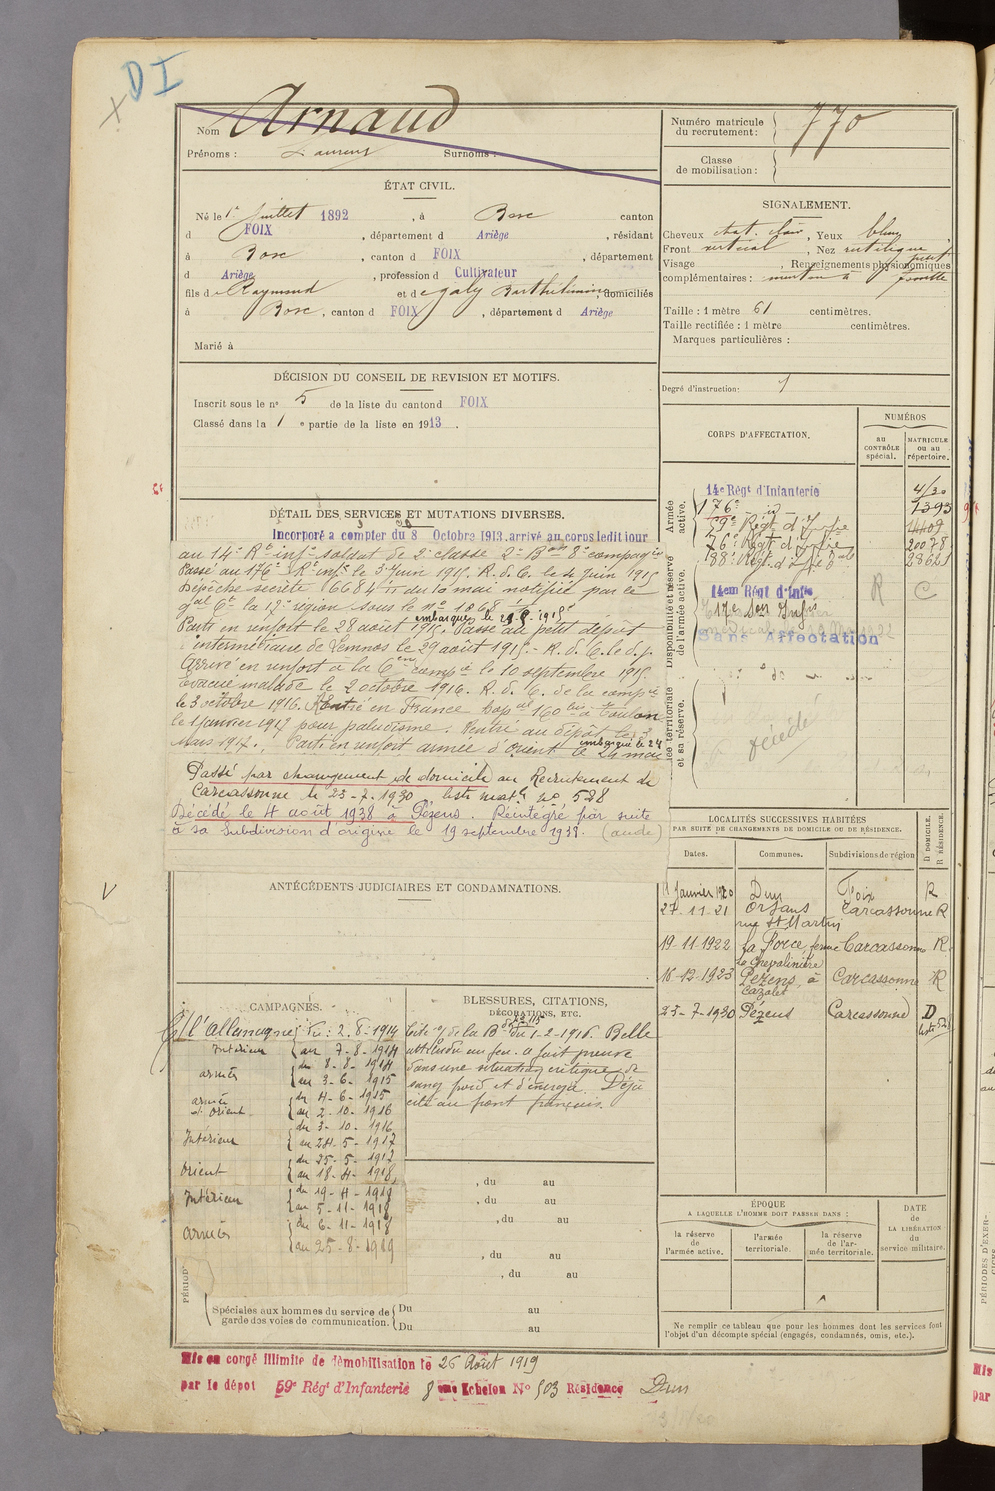 D I
Nom Arnaud
Prénoms : Laurent Surnoms :
Numéro matricule
du recrutement : 770
Classe
de mobilisation :
ÉTAT CIVIL.
Né le 1er juillet 1892, à Bosc canton
d FOIX, département d Ariège, résidant
à Bosc, canton d FOIX, département
d Ariège, profession d Cultivateur
fils de Raymond et de Galy Barthélemine, domiciliés
à Bosc, canton d FOIX, département d Ariège
Marié à
SIGNALEMENT.
Cheveux chat. clair, Yeux bleus
Front vertical, Nez rectiligne
Visage , Renseignements physionomiques petit
complémentaires : menton à fossette
Taille : 1 mètre 61 centimètres.
Taille rectifiée : 1 mètre centimètres.
Marques particulières :
Degré d'instruction :
DÉCISION DU CONSEIL DE REVISION ET MOTIFS.
Inscrit sous le no 5 de la liste du canton d FOIX
Classé dans la 1 e partie de la liste en 1913.
CORPS D'AFFECTATION.
NUMÉROS
au
CONTRÔLE
spécial.
MATRICULE
ou au
répertoire.
Armée
active.
14e Régt d'Infanterie 4130
176e 1393
59e Régt d'Infie
76e Régt d'Infie 20078
88e Régt d'Infie
Disponibilité et réserve
de l'armée active.
14em Régt d'Infie
17e Son Infie
Sans Affectation
R C
Armée territoriale
et sa réserve.
décédé
DÉTAIL DES SERVICES ET MUTATIONS DIVERSES.
Incorporé a compter du 8 Octobre 1913. arrivé au corps ledit jour
au 14e Rt infie soldat de 2e classe 2e Bon 8e compagnie
Passé au 176e Rt infie le 3 Juin 1915. R. d. C. le 4 Juin 1915
Dépêche secrète 16684 du 10 mai notifiée par le
gal Ct la 17e région sous le No 1868
embarqué le
Parti en renfort le 28 août 1915. Passé au petit dépôt
intermédiaire de Lemnos le 29 août 1915. R. d. C. le d. j.
Arrivé en renfort à la 6em compie le 10 septembre 1915
Évacué malade le 2 octobre 1916. R. d. C. de la compie
le 3 octobre 1916. Rentré en France hopal 160 bis à Toulon
le 1 janvier 1917 pour paludisme. Rentré au dépôt le
mars 1917. Parti en renfort armée d'orient le 24 mai
embarqué le 24
Passé par changement de domicile au Recrutement de
Carcassonne le 23-7-1930 liste matle no 528
Décédé le 4 août 1938 à Pézens. Réintégré par suite
à sa Subdivision d'origine le 19 septembre 1938. (aude)
LOCALITÉS SUCCESSIVES HABITÉES
PAR SUITE DE CHANGEMENTS DE DOMICILE OU DE RÉSIDENCE.
Dates. Communes. Subdivisions de région D DOMICILE. R RÉSIDENCE.
11 Janvier 1920 Dun Foix R
27-11-21 Orsans Carcassonne R
rue St Martin
19-11-1922 La Force ferme Carcassonne R
la Chevalinière
16-12-1923 Pézens à Carcassonne R
Cazalet
23-7-1930 Pézens Carcassonne D
ANTÉCÉDENTS JUDICIAIRES ET CONDAMNATIONS.
CAMPAGNES.
C/ l'Allemagne du : 2-8-1914
Intérieur au 7-8-1914
armées du 8-8-1914
au 3-6-1915
armée d'Orient du 4-6-1915
au 2-10-1916
Intérieur du 3-10-1916
au 24-5-1917
Orient du 25-5-1917
au 18-4-1918
Intérieur du 19-4-1918
au 5-11-1918
armées du 6-11-1918
au 25-8-1919
BLESSURES, CITATIONS,
DÉCORATIONS, ETC.
Cité de la Bde du 1-2-1916. Belle
attitude au feu. a fait preuve
dans une situation critique de
sang froid et d'énergie. Déjà
cité au front français.
, du au
, du au
, du au
, du au
, du au
PÉRIOD
Spéciales aux hommes du service de
garde des voies de communication.
Du au
Du au
ÉPOQUE
A LAQUELLE L'HOMME DOIT PASSER DANS :
la réserve
de
l'armée active.
l'armée
territoriale.
la réserve
de l'ar-
mée territoriale.
DATE
de
LA LIBÉRATION
du
service militaire.
Ne remplir ce tableau que pour les hommes dont les services font
l'objet d'un décompte spécial (engagés, condamnés, omis, etc.).
Mis en congé illimité de démobilisation le 26 Août 1919
par le dépôt 59e Régt d'Infanterie 8 eme Echelon No 503 Résidence Dun
PÉRIODES D'EXER-
Mis
par